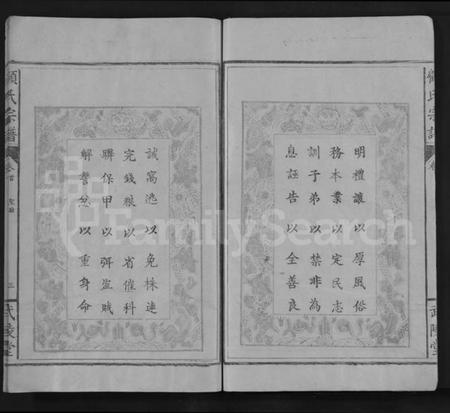 顧氏宗譜
明禮讓以厚風俗
務本業以定民志
訓子弟以禁非為
息誣告以全善良
武陵堂
顧氏宗譜
卷首
誡窩逃以免株連
完錢粮以省催科
聯保甲以弭盜賊
解讐忿以重身命
二
武陵堂
FamilySearch